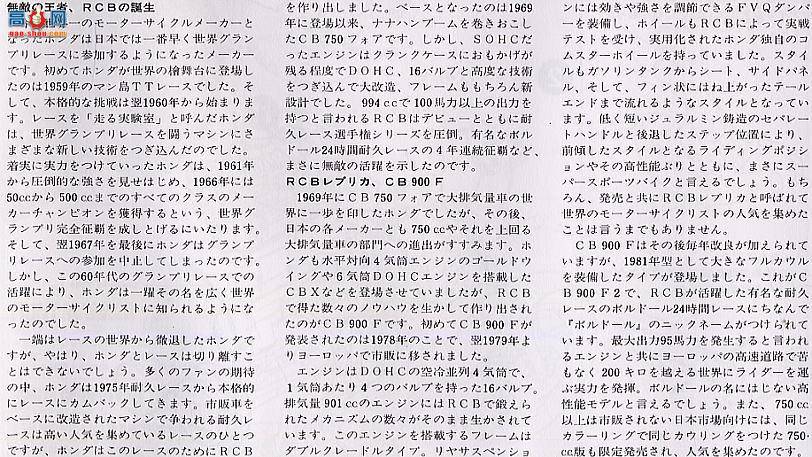 無敵の王者、RCBの誕生
一のモーターサイクルメーカーと
なったホンダは日本では一番早く世界グラン
プリレースに参加するようになったメーカー
です。初めてホンダが世界の檜舞台に登場し
たのは1959年のマン島TTレースでした。そ
して、本格的な挑戦は翌1960年から始まりま
す。レースを「走る実験室」と呼んだホンダ
は、世界グランプリレースを闘うマシンにさ
まざまな新しい技術をつぎ込んだのでした。
着実に実力をつけていったホンダは、1961年
から圧倒的な強さを見せはじめ、1966年には
50ccから500ccまでのすべてのクラスのメー
カーチャンピオンを獲得するという、世界グ
ランプリ完全征覇を成しとげるにいたります。
そして、翌1967年を最後にホンダはグランプ
リレースへの参加を中止してしまったのです。
しかし、この60年代のグランプリレースでの
活躍により、ホンダは一躍その名を広く世界
のモーターサイクリストに知られるようにな
ったのでした。
一端はレースの世界から徹退したホンダで
すが、やはり、ホンダとレースは切り離すこ
とはできないでしょう。多くのファンの期待
の中、ホンダは1975年耐久レースから本格的
にレースにカムバックしてきます。市販車を
ベースに改造されたマシンで争われる耐久レ
ースは高い人気を集めているレースのひとつ
ですが、ホンダはこのレースのためにRCB
を作り出しました。ベースとなったのは1969
年に登場以来、ナナハンブームを巻きおこし
たCB750フォアです。しかし、SOHCだ
ったエンジンはクランクケースにおもかげが
残る程度でDOHC、16バルブと高度な技術
をつぎ込んで大改造、フレームももちろん新
設計でした。994ccで100馬力以上の出力を
持つと言われるRCBはデビューとともに耐
久レース選手権シリーズを圧倒。有名なボル
ドール24時間耐久レースの4年連続征覇など、
まさに無敵の活躍を示したのです。
RCBレプリカ、CB900F
1969年にCB750フォアで大排気量車の世
界に一歩を印したホンダでしたが、その後、
日本の各メーカーとも750ccやそれを上回る
大排気量車の部門への進出がすすみます。ホ
ンダも水平対向4気筒エンジンのゴールドウ
イングや6気筒DOHCエンジンを搭載した
CBXなどを登場させていましたが、RCB
で得た数々のノウハウを生かして作り出され
たのがCB900Fです。初めてCB900Fが
発表されたのは1978年のことで、翌1979年よ
りヨーロッパで市販に移されました。
エンジンはDOHCの空冷並列4気筒で、
1気筒あたり4つのバルブを持った16バルブ。
排気量901ccのエンジンにはRCBで鍛えら
れたメカニズムの数々がそのまま生かされて
います。このエンジンを搭載するフレームは
ダブルクレードルタイプ。リヤサスペンショ
ンには効きや強さを調節できるFVQダンパ
ーを装備し、ホイールもRCBによって実戦
テストを受け、実用化されたホンダ独自のコ
ムスターホイールを持っていました。スタイ
ルもガソリンタンクからシート、サイドパネ
ル、そして、フィン状にはね上がったテール
エンドまで流れるようなスタイルとなってい
ます。低く短いジュラルミン鋳造のセパレー
トハンドルと後退したステップ位置により、
前傾したスタイルとなるライディングポジシ
ョンやその高性能ぶりとともに、まさにスー
パースポーツバイクと言えるでしょう。もち
ろん、発売と共にRCBレプリカと呼ばれて
世界のモーターサイクリストの人気を集めた
ことは言うまでもありません。
CB900Fはその後毎年改良が加えられて
いますが、1981年型として大きなフルカウル
を装備したタイプが登場しました。これがC
B900F2で、RCBが活躍した有名な耐久
レースのボルドール24時間レースにちなんで
『ボルドール』のニックネームがつけられて
います。最大出力95馬力を発生すると言われ
るエンジンと共にヨーロッパの高速道路で苦
もなく200キロを越える世界にライダーを運
ぶ実力を発揮。ボルドールの名にはじない高
性能モデルと言えるでしょう。また、750cc
以上は市販されない日本市場向けには、同じ
カラーリングで同じカウリングをつけた750
cc版も限定発売され、人気を集めたのです。